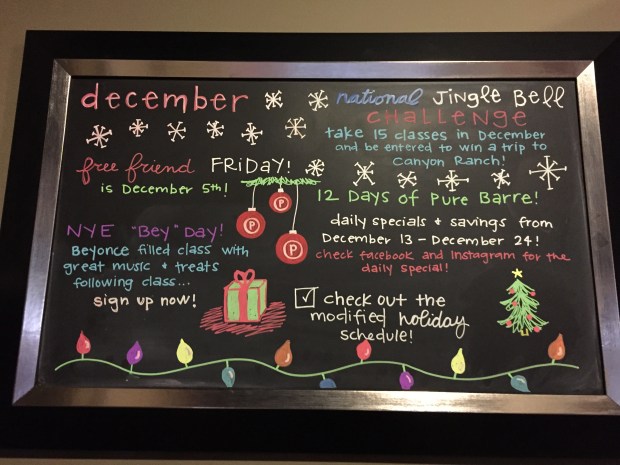 december
free friend FRiDAY!
is December 5th!
NYE "Bey" Day!
Beyonce filled class with
great music & treats
following class...
sign up now!
national Jingle Bell
CHALLENGE
take 15 classes in December
and be entered to win a trip to
Canyon Ranch!
12 Days of Pure Barre!
daily specials & savings from
December 13 - December 24!
check facebook and Instagram for the
daily special!
check out the
modified holiday
schedule!
P
P
P